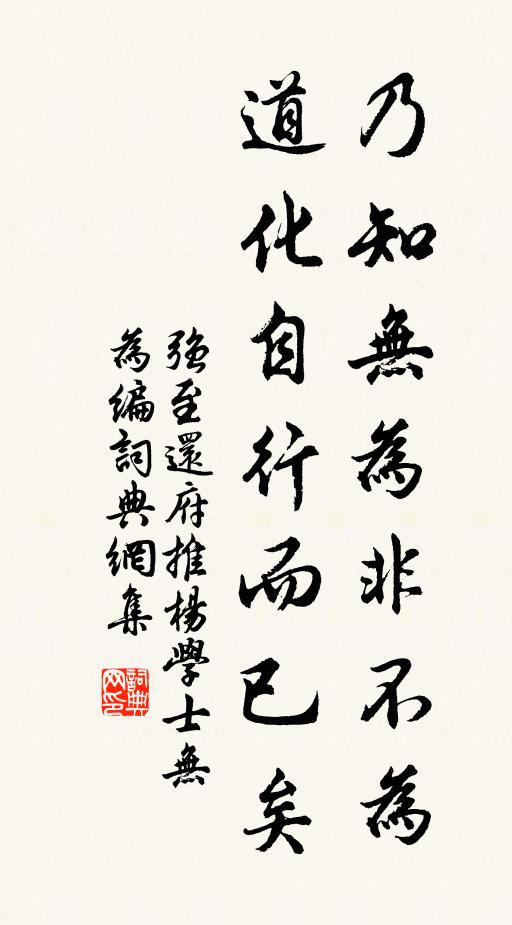 乃知無為非不為
道化自行而已矣
強至還府推楊學士無
為編詞典網集
詞典
网印